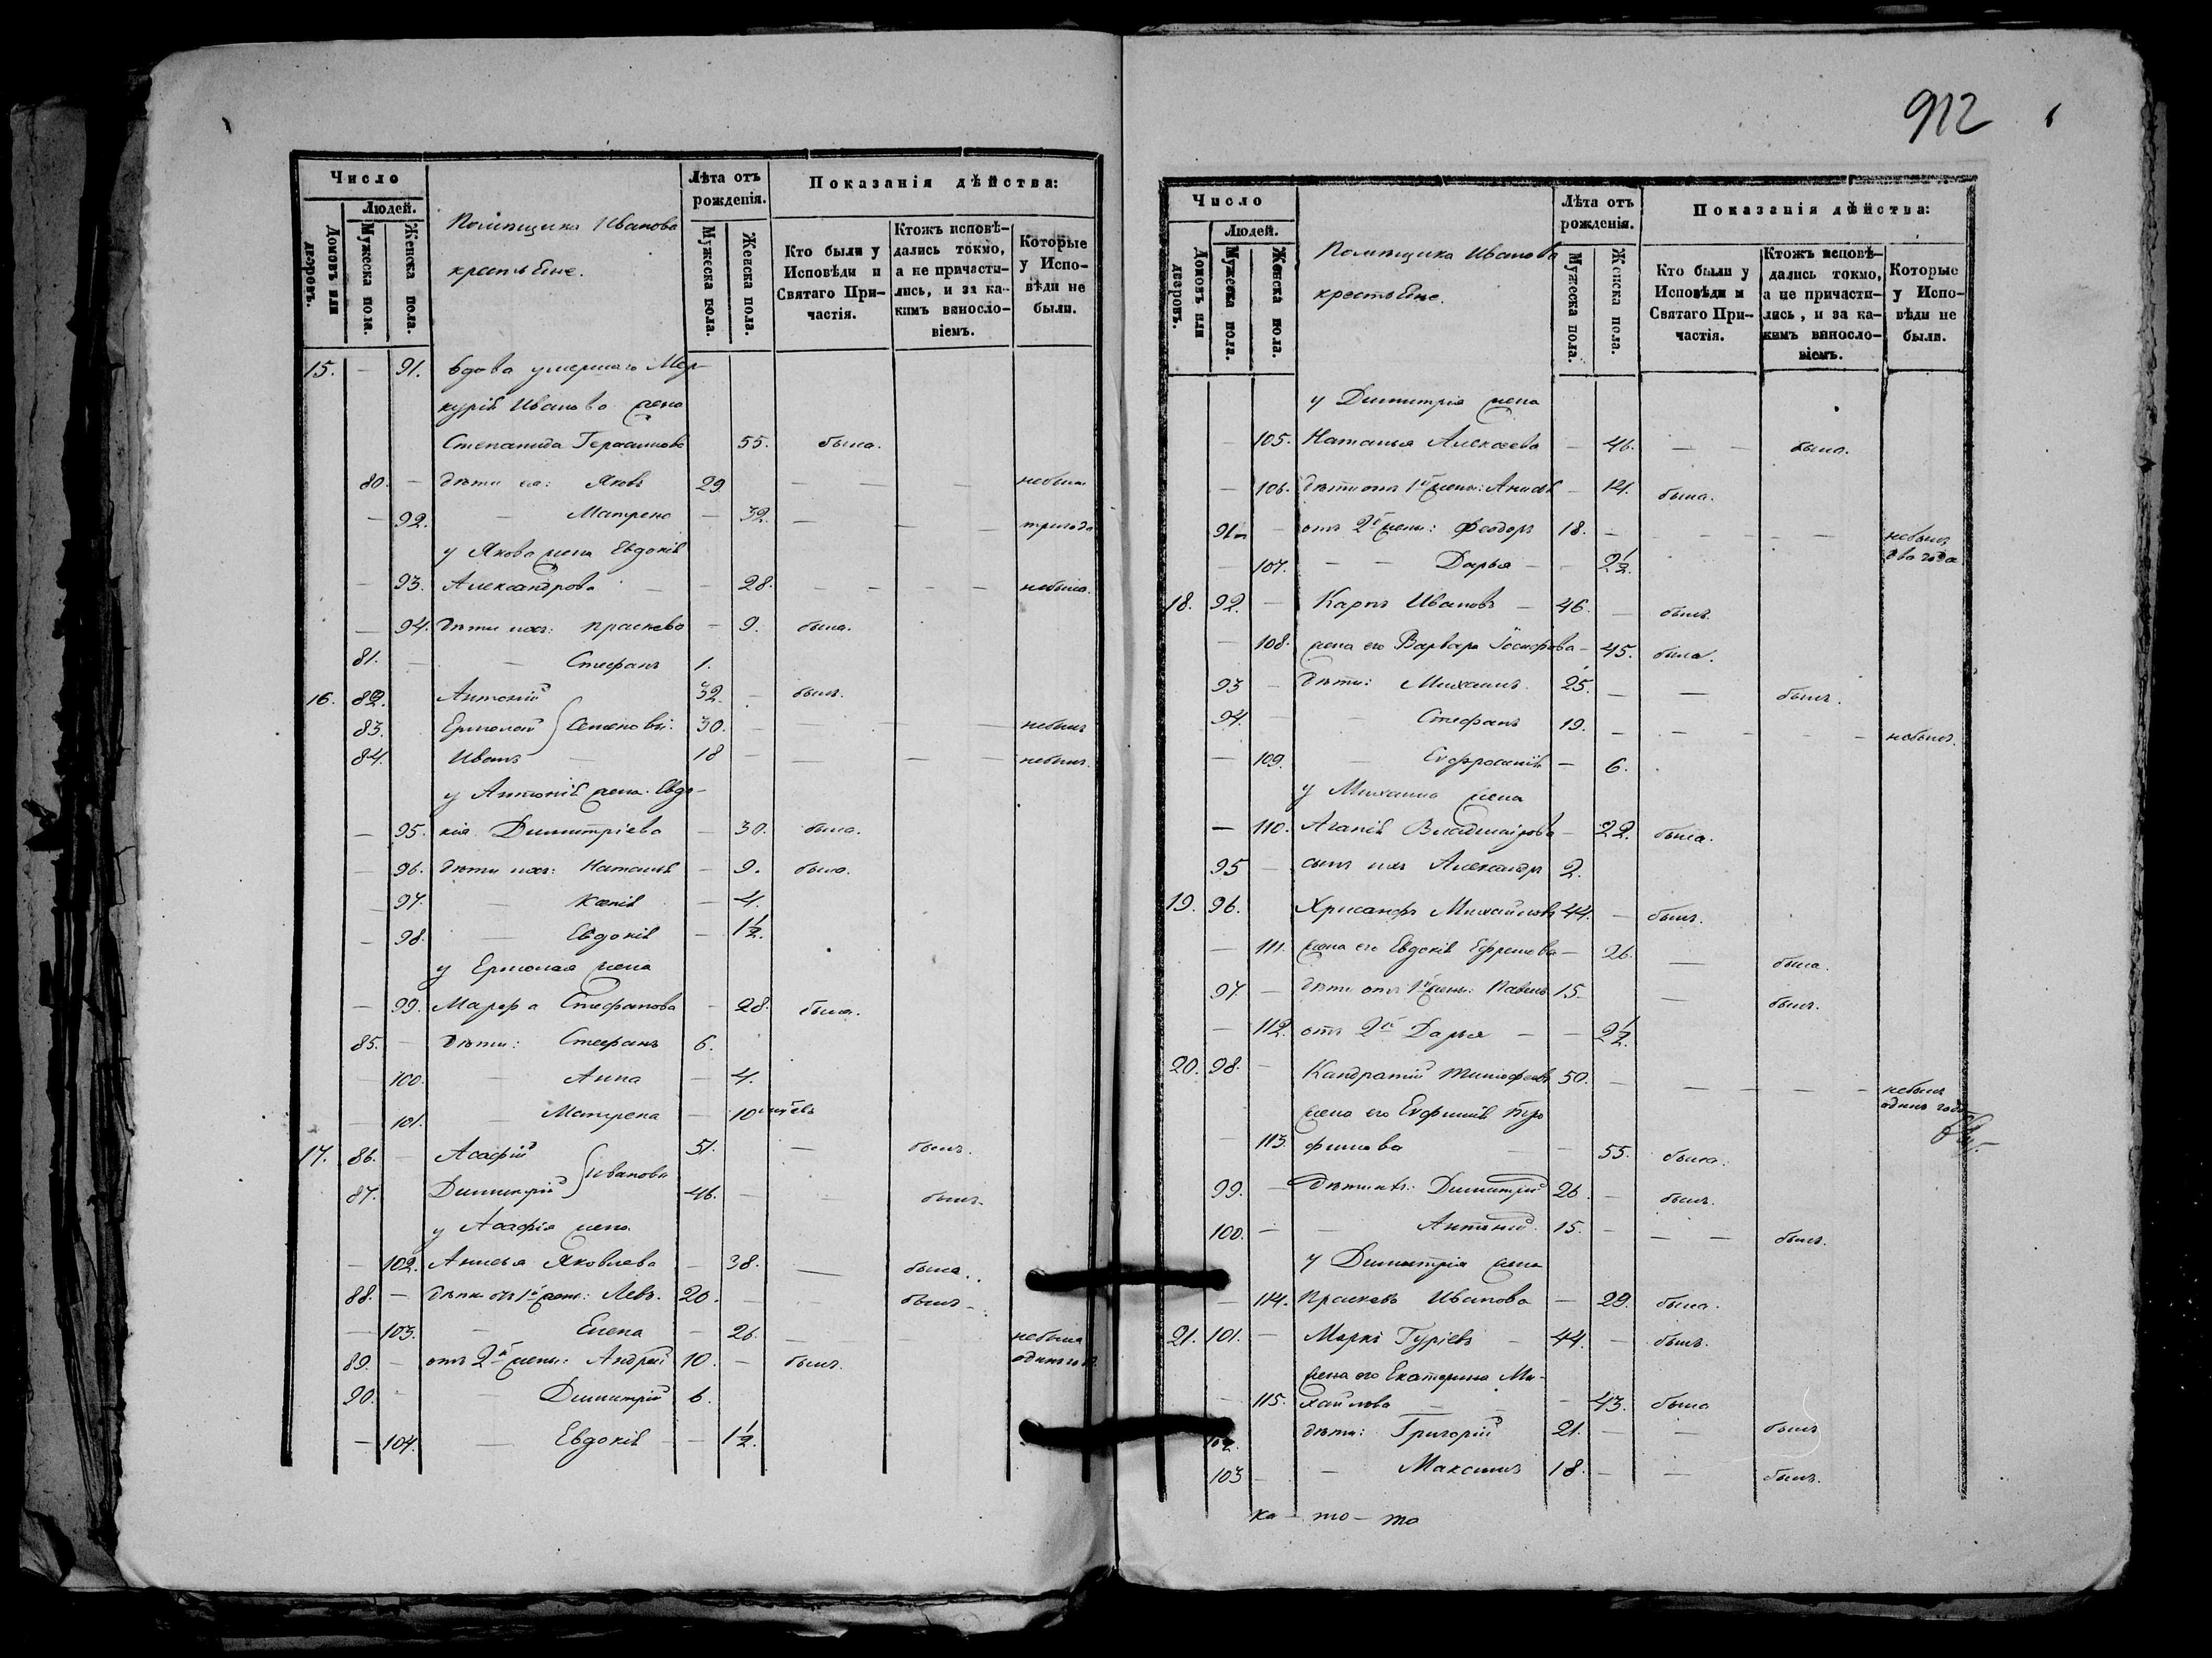 Число
Людей.
Домовъ или дворовъ.
Мужеска пола.
Женска пола.
Помѣщика Иванова
крестьяне.
Лѣта отъ рожденія.
Мужеска пола.
Женска пола.
Показанія дѣйства:
Кто были у Исповѣди и Святаго Причастія.
Ктожъ исповѣдались токмо, а не причастились, и за какимъ винословіемъ.
Которые у Исповѣди не были.
15. — 91. вдова умершаго Мер-
курія Иванова жена
Степанида Герасимова 55. была.
80. — дѣти ея: Яковъ 29. — — — небылъ
— 92. — Матрена — 32. — — — три года
у Якова жена Евдокія
— 93. Александрова — — 28. — — — — небыла.
— 94. дѣти ихъ: Праскева — 9. была.
81. — — Стефанъ 1.
16. 82. Антоній 32. — былъ.
83. Ермолай Семеновы: 30. — — — небылъ
84. Иванъ — 18 — — — — небылъ.
у Антонія жена Евдо-
— 95. кія Димитріева — 30. была.
— 96. дѣти ихъ: Наталія — 9. была.
— 97. — Ксенія — 4.
— 98. — Евдокія — 1½.
у Ермолая жена
— 99. Марѳа Стефанова — 28. была.
85. — дѣти: Стефанъ 6.
— 100. — Анна — 4.
— 101. — Матрена — 10 мцѣвъ
17. 86. — Асафій 51. — былъ.
87. Димитрій Ивановы 46. — — былъ.
у Асафія жена
— 102. Анисья Яковлева — 38. — была.
88. — дѣти отъ 1й жены: Левъ. 20. — былъ —
— 103. — Елена — 26. — — небыла
89. — отъ 2й жены: Андрей 10. — былъ. одинъ годъ
90. — — Димитрій 6.
— 104. — Евдокія — — 1½.
912
Число
Людей.
Домовъ или дворовъ.
Мужеска пола.
Женска пола.
Помѣщика Иванова
крестьяне.
Лѣта отъ рожденія.
Мужеска пола.
Женска пола.
Показанія дѣйства:
Кто были у Исповѣди и Святаго Причастія.
Ктожъ исповѣдались токмо, а не причастились, и за какимъ винословіемъ.
Которые у Исповѣди не были.
у Димитрія жена
— 105. Наталья Алексеева — 46. — — была.
— 106. дѣти отъ 1й жены: — 21. была.
91 — отъ 2й жены: Феодоръ 18. — — — — небылъ
два года
— 107. — — Дарья — — 2½.
18. 92. — Карпъ Ивановъ — 46. — былъ.
— 108. жена его Варвара Іосифова — 45. была.
93 — дѣти: Михаилъ. 25. — — былъ.
94. — — Стефанъ 19. — — — — небылъ.
— 109. — Евфросинія — 6.
у Михаила жена
— 110. Агапія Владимірова — 22. была.
95 — сынъ ихъ Александръ 2.
19. 96. Хрисанфъ Михайловъ 44. — былъ.
— 111. жена его Евдокія Ефремова — 26. — была.
97. — дѣти отъ 1й жены: Павелъ 15. — былъ.
— 112. отъ 2й Дарья — — 2½.
20. 98. — Кандратій Тимофеевъ 50. — — — — небылъ
одинъ годъ
жена его Евфимія Тро
— 113. фимова — — 55. была.
99. — дѣти ихъ: Димитрій 26. — былъ.
100. — — Антоній 15. — — — былъ.
у Димитрія жена
— 114. Праскева Иванова — 29. была.
21. 101. — Маркъ Гурієвъ — 44. — былъ.
жена его Екатерина Ми-
— 115. хайлова — — — 43. была
102. дѣти: Григорій 21. — — былъ
103 — — Максимъ 18. — — былъ.
ка — то — та